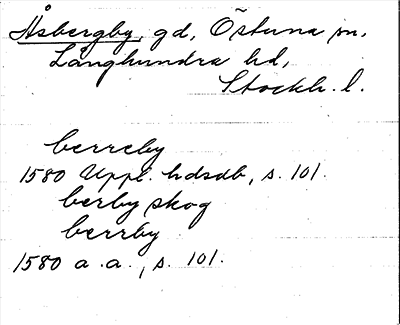 Åsbergby, gd, Östuna sn,
Långhundra hd,
Stockh. l.
berreby
1580 Uppl. hdsdb, s. 101.
berby skog
berrby
1580 a. a., s. 101.